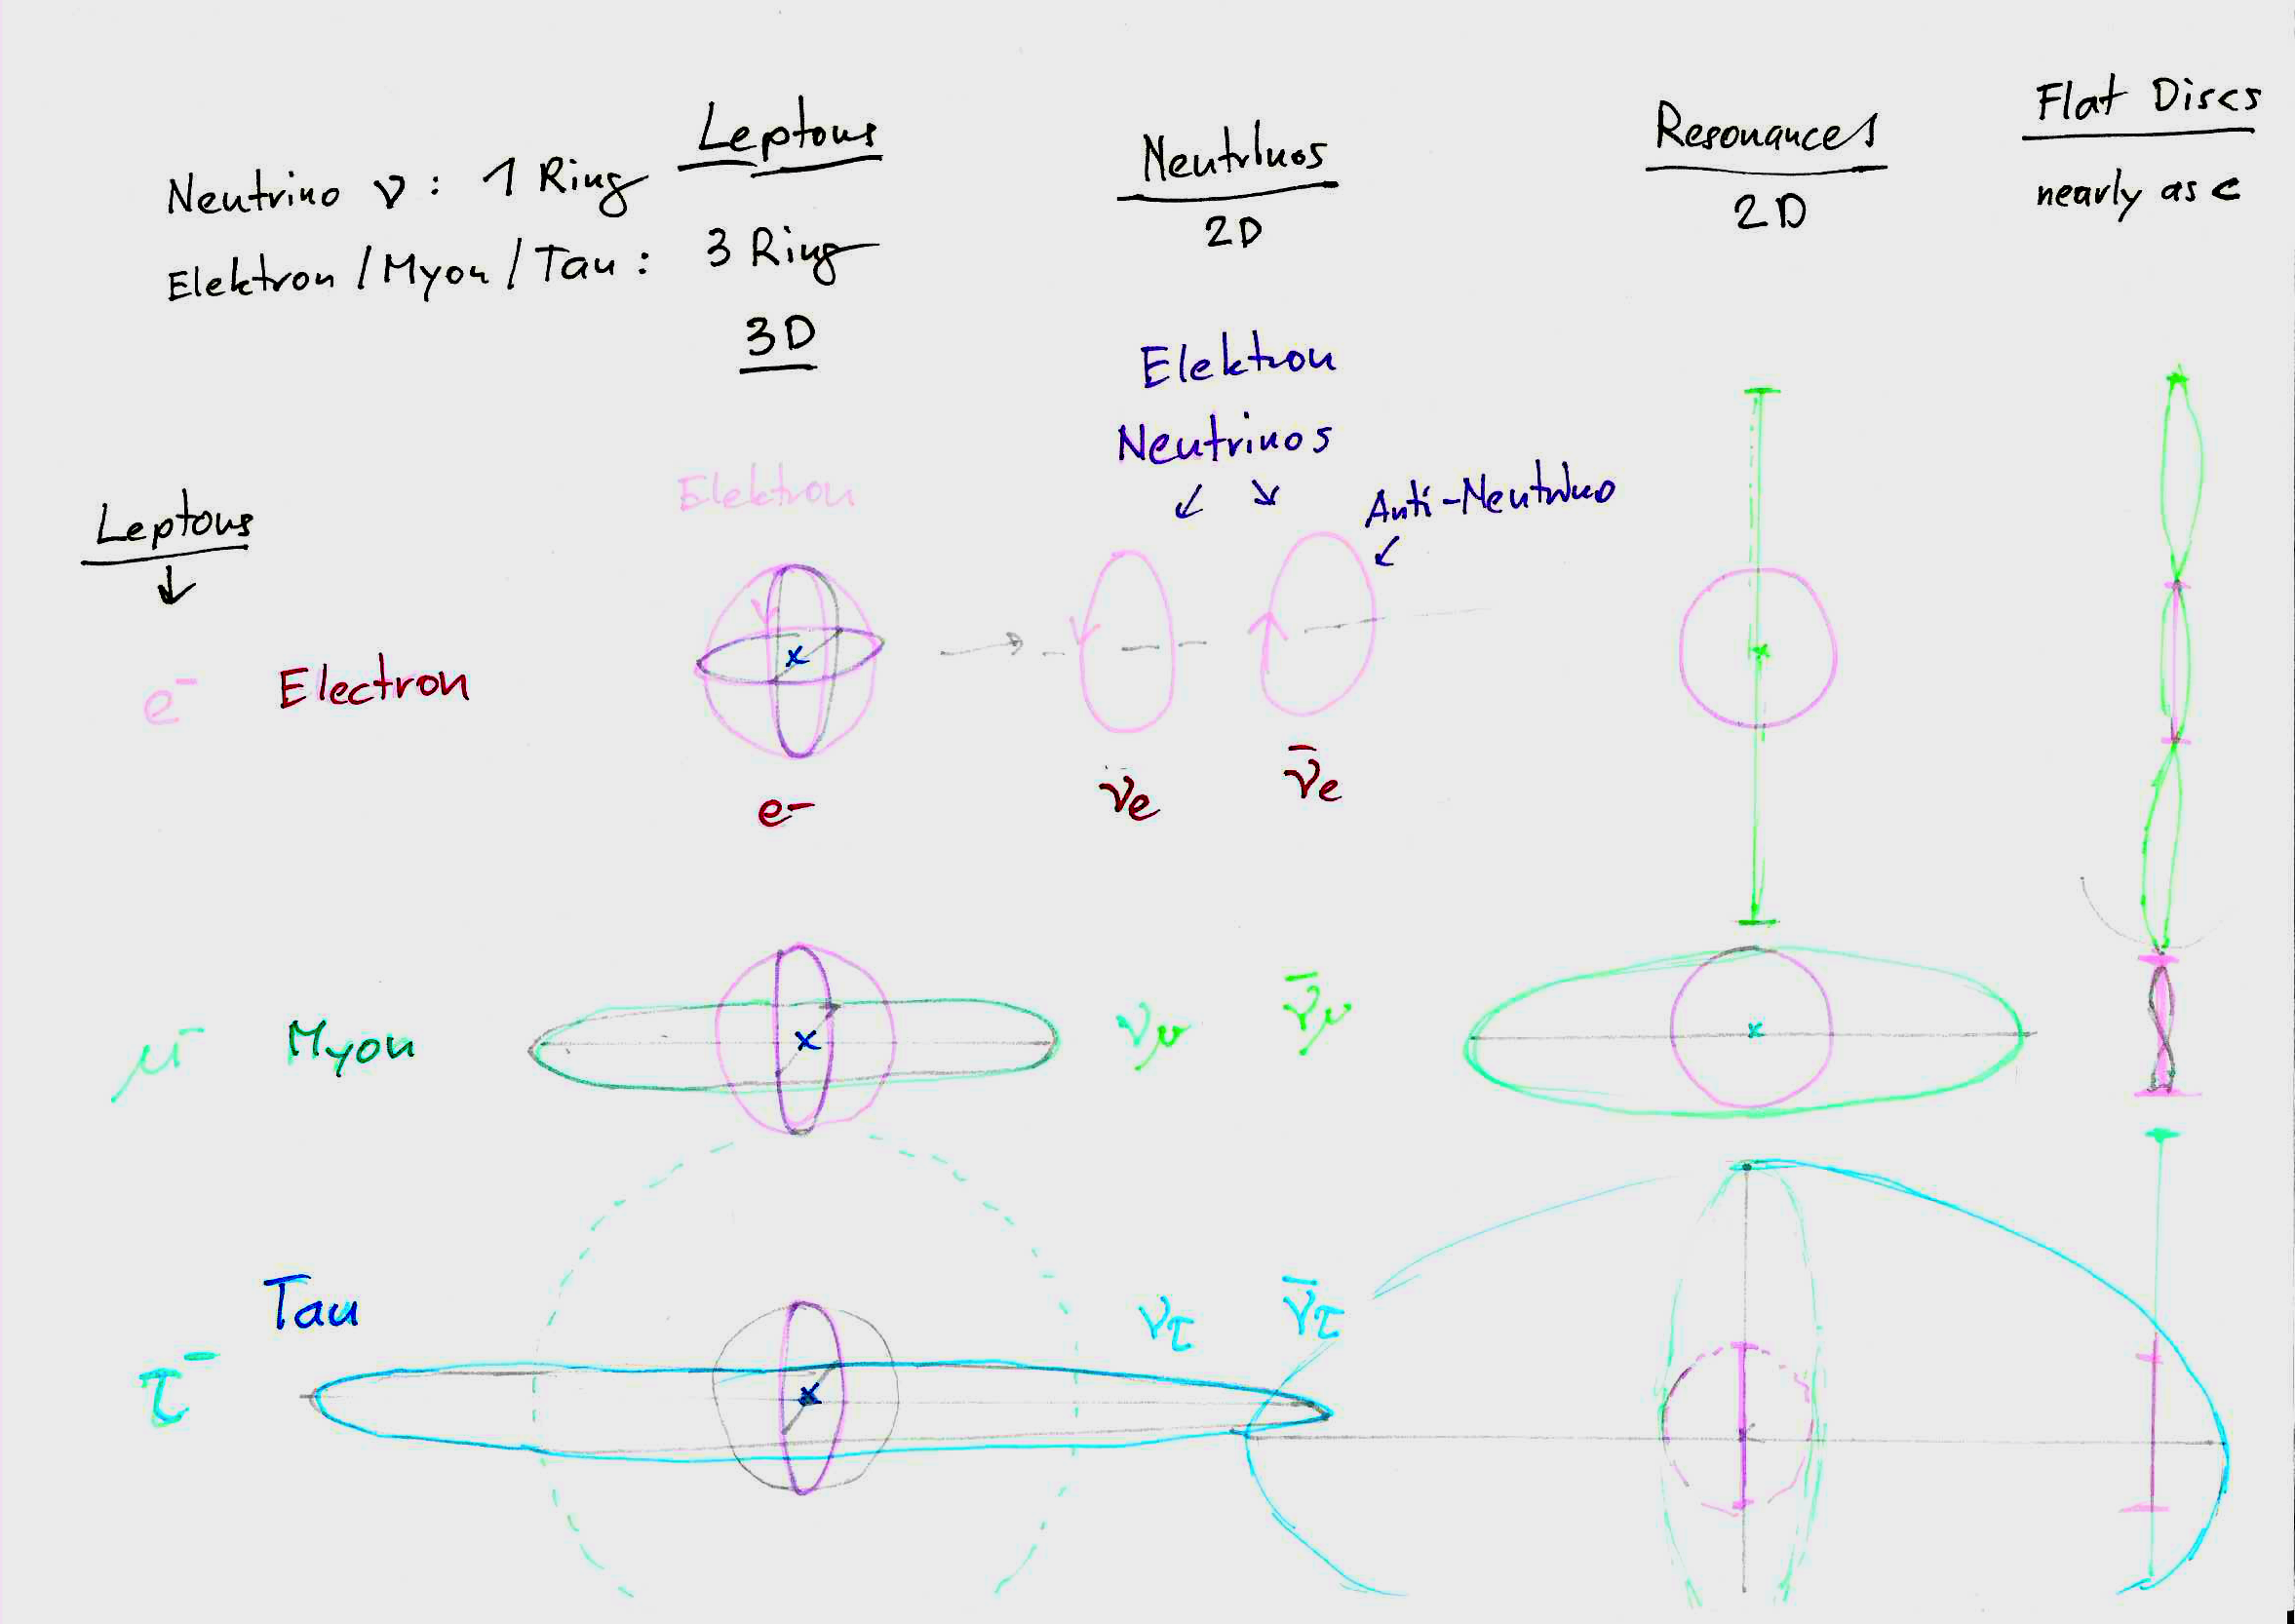 Leptons
Neutrino ν : 1 Ring
Elektron / Myon / Tau : 3 Ring
3D
Neutrinos
2D
Resonances
2D
Flat Discs
nearly as c
Elektron
Neutrinos
↙ ↘
Anti-Neutrino
↙
Elektron
Leptons
↓
e⁻ Electron
x
e⁻
νe
ν̄e
x
μ⁻ Myon
x
νμ
ν̄μ
x
Tau
τ⁻
x
ντ
ν̄τ